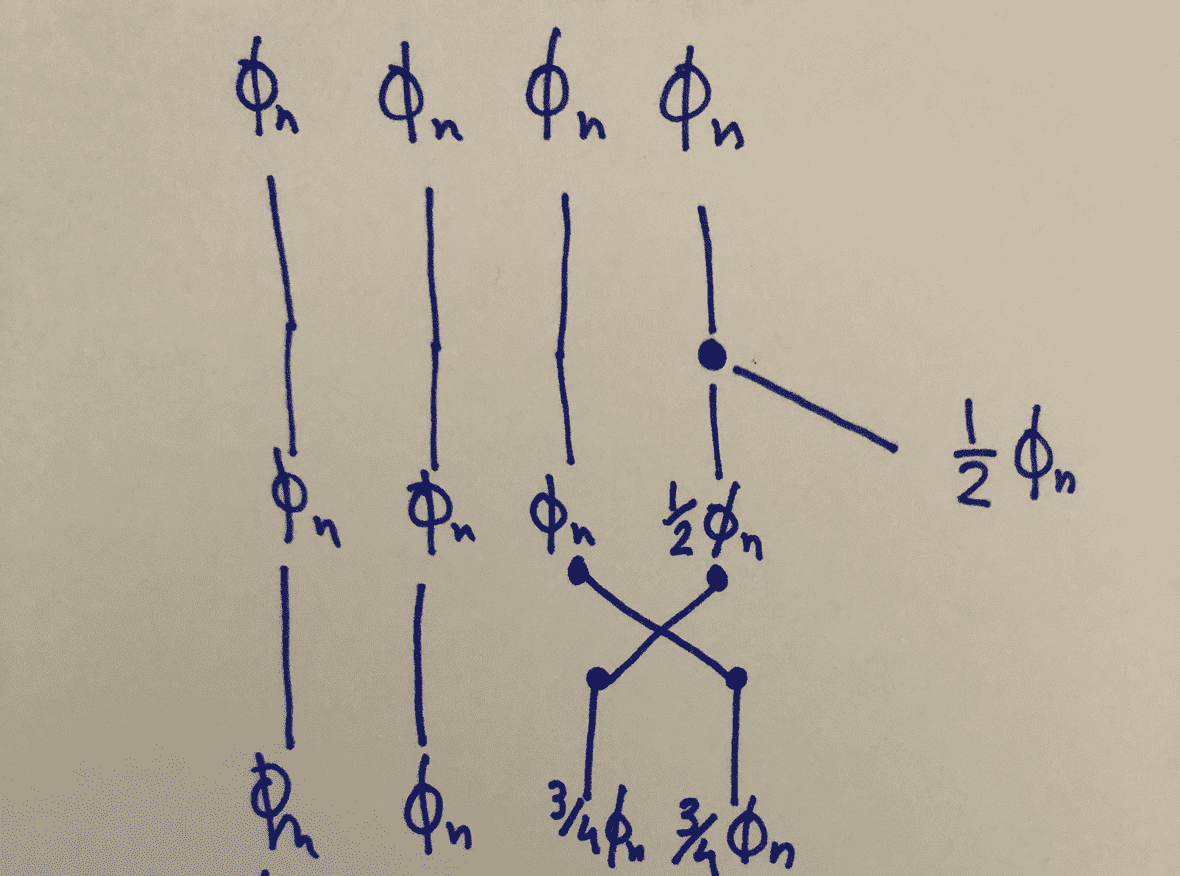 ϕn ϕn ϕn ϕn
½ ϕn
ϕn ϕn ϕn ½ ϕn
ϕn ϕn ¾ ϕn ¾ ϕn